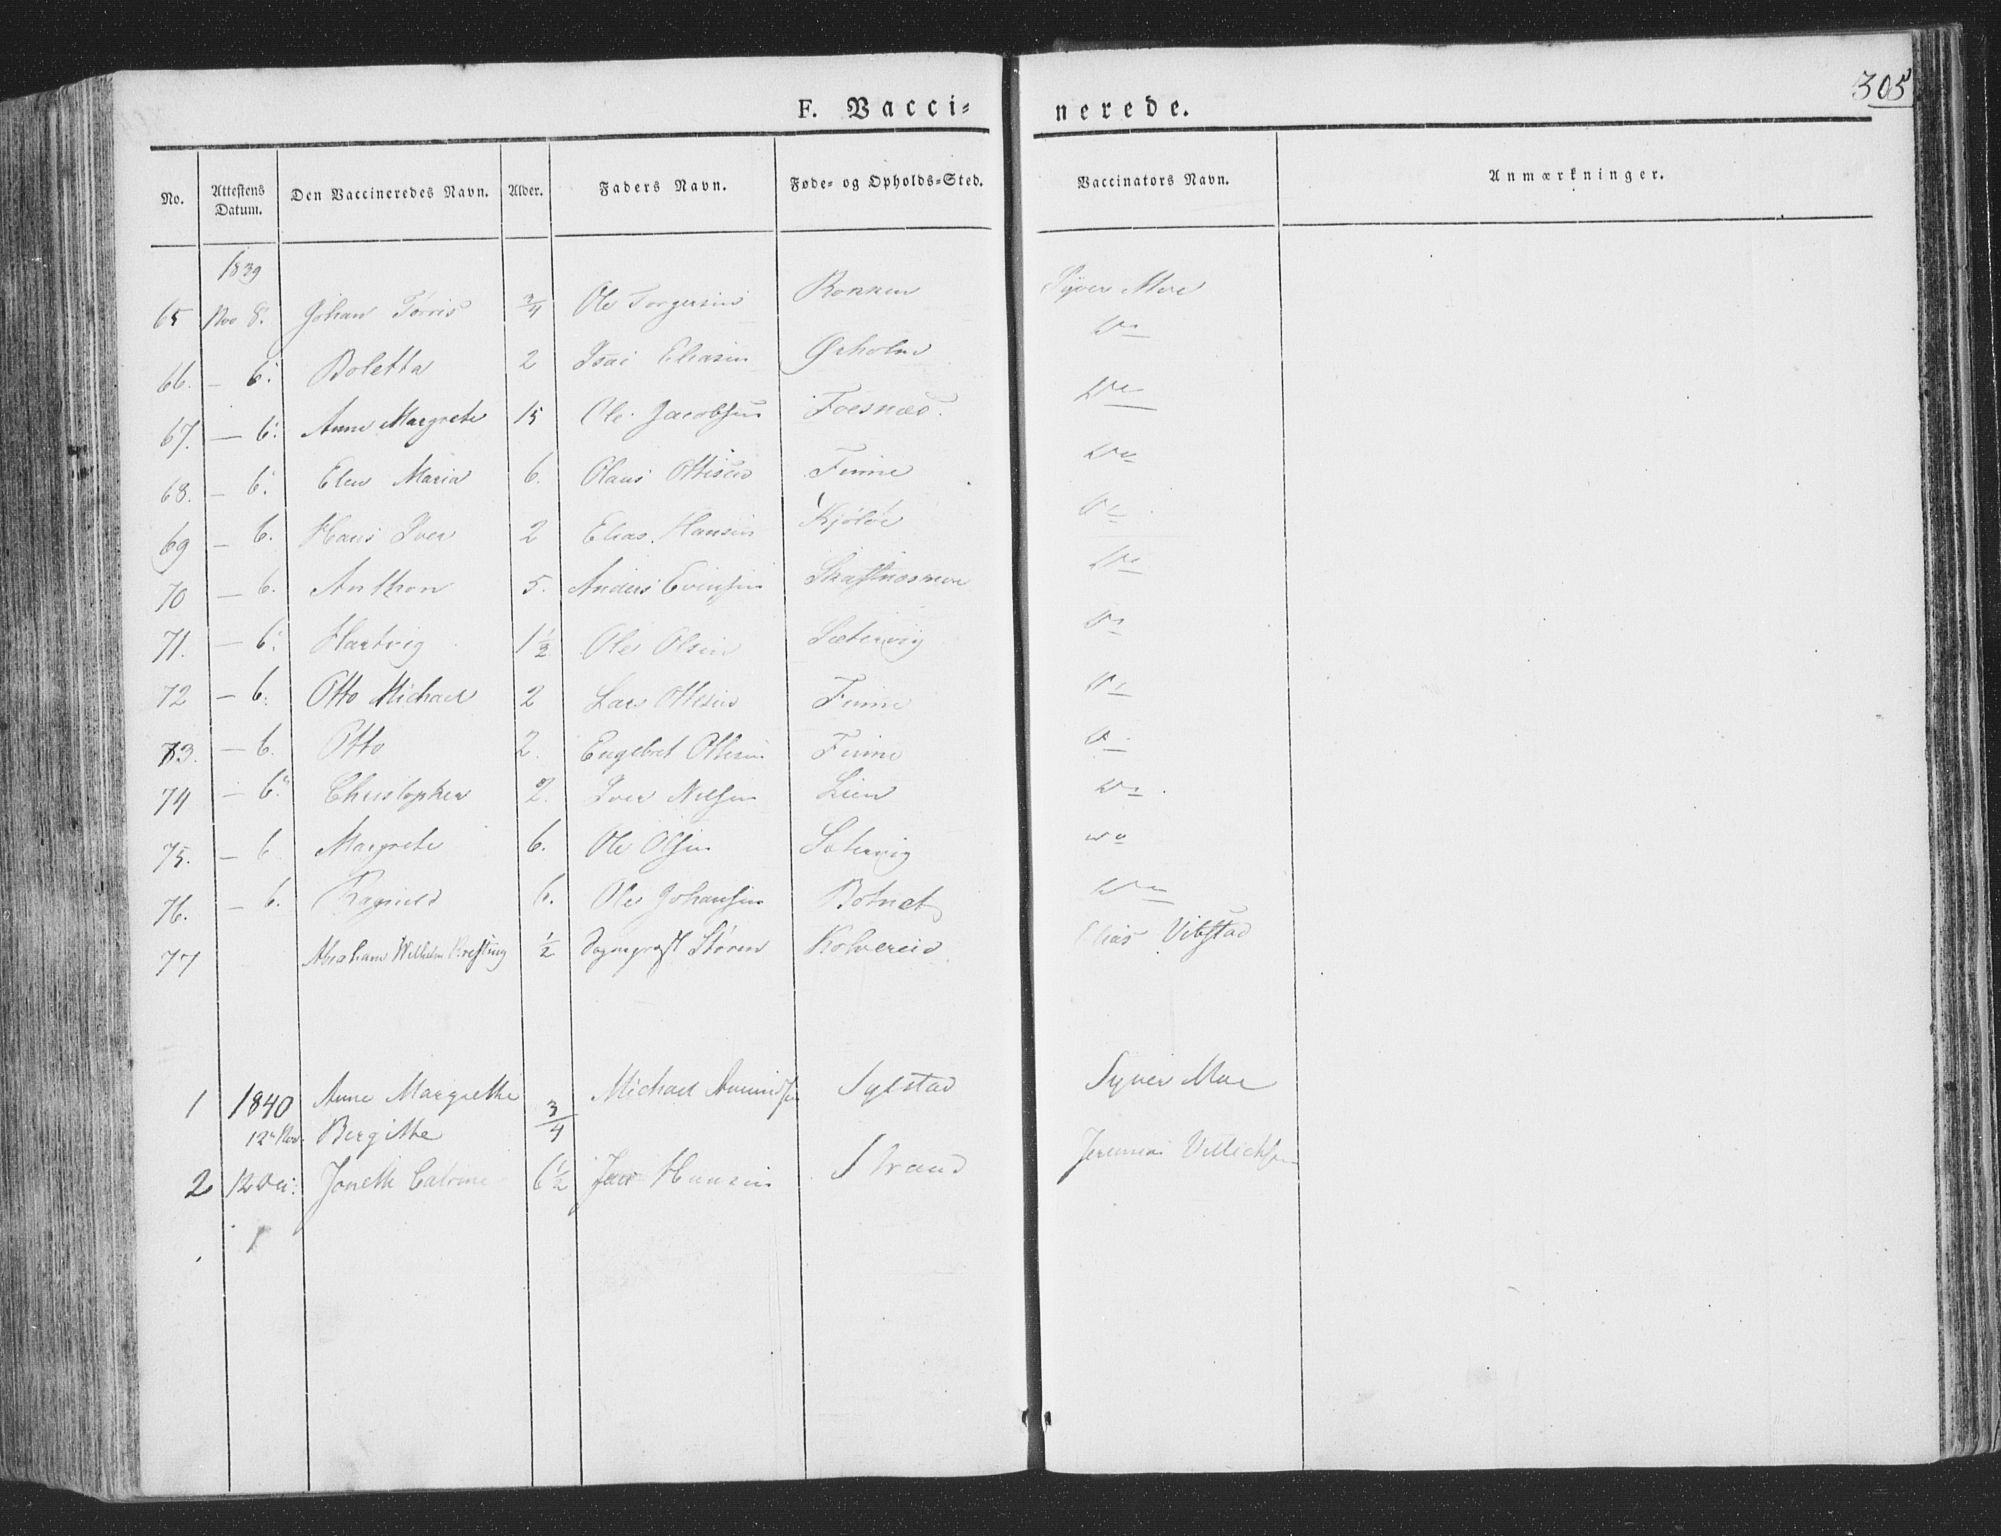 305
F. Vacci- nerede.
No. Attestens Datum. Den Vaccineredes Navn. Alder. Faders Navn. Føde- og Opholds-Sted. Vaccinators Navn. Anmærkninger.
1839
65 Nov 8. Johan Tørris 3/4 Ole Torgersen Syver Moe
66. – 6. Boletta 2 Isac Eliasen Ørholm
67. – 6. Anne Margrete 15 Ole Jacobsen Foesnæs.
68. – 6. Elen Maria 6. Olaus Ottesen Finne
69 – 6. Hans Iver 2 Elias Hansen Kjøløe
70 – 6. Anthon 5. Anders Evensen
71. – 6. Hartvig 1 1/2 Ole Olsen Sætervig
72 – 6. Otto Michael 2 Lars Ottesen Finne
73. – 6. Otto 2. Engebret Ottesen Finne
74 – 6. Christopher 2. Iver Nilsen Lien
75. – 6 Margrete 6. Ole Olsen Setervig
76. – 6. Ragnild 6. Ole Johansen Botnet
77 Abraham Wilhelm 1/2 Støren Kolvereid Elias Vibstad
1 1840 Anne Margrethe Michael Amundsen Sylstad Syver Moe
12 Nov. Birgitthe 3/4
2 12 Jonette Catrine 6 1/2 Hansen Strand